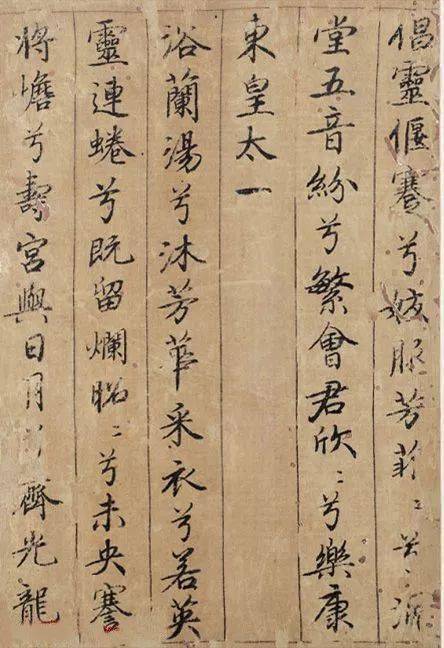 倡靈偃蹇兮姣服芳菲〻兮滿
堂五音紛兮繁會君欣〻兮樂康
東皇太一
浴蘭湯兮沐芳華采衣兮若英
靈連蜷兮既留爛昭〻兮未央謇
將憺兮壽宮與日月兮齊光龍